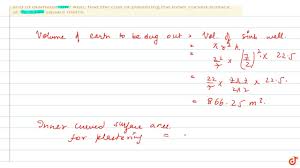 Volume of earth to be dug out = Vol. of sink well.
= πr²h
= 22/7 × (7/2)² × 22.5
= 22/7 × 7×7/2×2 × 22.5
= 866.25 m³.
Inner curved surface area
for plastering =